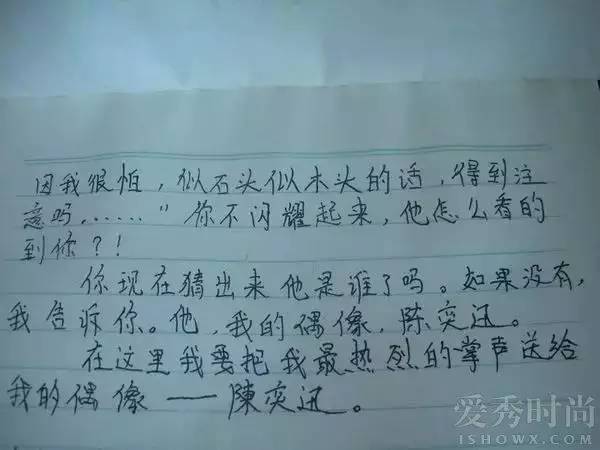 因我很怕，似石头似木头的话，得到注
意吗，……”你不闪耀起来，他怎么看的
到你？！
你现在猜出来他是谁了吗。如果没有，
我告诉你。他，我的偶像，陈奕迅。
在这里我要把我最热烈的掌声送给
我的偶像——陳奕迅。
爱秀时尚
ISHOWX.COM